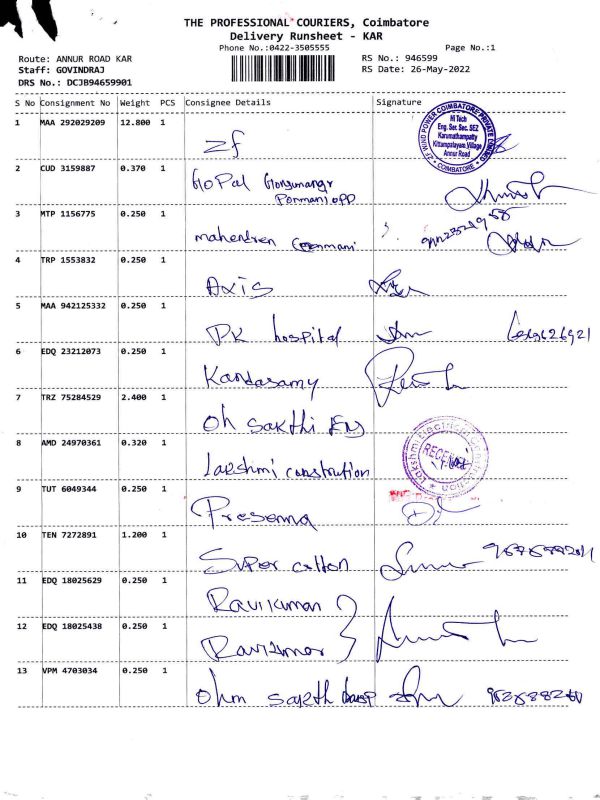 THE PROFESSIONAL COURIERS, Coimbatore
Delivery Runsheet - KAR
Phone No.:0422-3505555
Page No.:1
Route: ANNUR ROAD KAR
RS No.: 946599
Staff: GOVINDRAJ
RS Date: 26-May-2022
DRS No.: DCJB94659901
S No Consignment No Weight PCS Consignee Details Signature
1 MAA 292029209 12.800 1
zf
ZF WIND POWER COIMBATORE PRIVATE LIMITED
Hi Tech
Eng. Ser. Sec. SEZ
Karumathampatty
Kittampalayam Village
Annur Road
COIMBATORE
2 CUD 3159887 0.370 1
GoPal
opp
3 MTP 1156775 0.250 1
mahendren
4 TRP 1553832 0.250 1
Axis
5 MAA 942125332 0.250 1
PK hospital
6 EDQ 23212073 0.250 1
Kandasamy
7 TRZ 75284529 2.400 1
Oh sakthi
8 AMD 24970361 0.320 1
Lakshmi constrution
Lakshmi Electrical
RECEIVED
9 TUT 6049344 0.250 1
Presanna
10 TEN 7272891 1.200 1
Super cotton
11 EDQ 18025629 0.250 1
Ravikumar
12 EDQ 18025438 0.250 1
Ravikumar
13 VPM 4703034 0.250 1
Ohm sakth